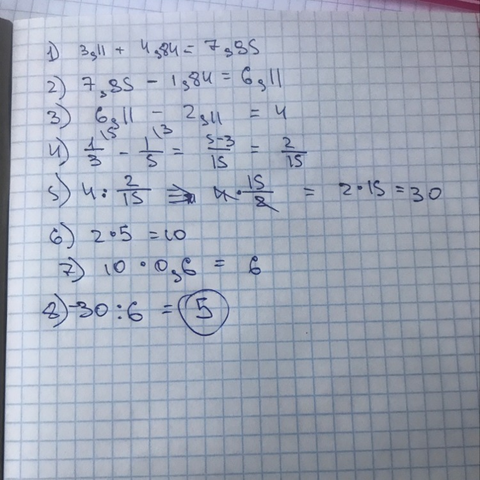 1) 3,11 + 4,84 = 7,95
2) 7,95 - 1,84 = 6,11
3) 6,11 - 2,11 = 4
4) 1/3 \5 - 1/5 \3 = 5-3/15 = 2/15
5) 4 : 2/15 => 4 · 15/2 = 2·15 = 30
6) 2·5 = 10
7) 10 · 0,6 = 6
8) 30 : 6 = 5